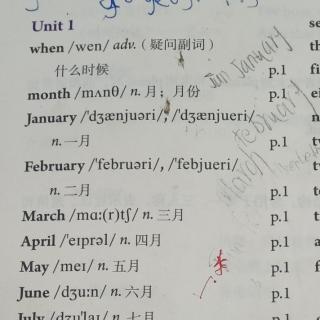 Unit 1
when /wen/ adv.（疑问副词）
什么时候 p.1
month /mʌnθ/ n. 月；月份 p.1
January /'dʒænjuəri/, /'dʒænjueri/
n. 一月 p.1
February /'februəri/, /'febjueri/
n. 二月 p.1
March /mɑ:(r)tʃ/ n. 三月 p.1
April /'eɪprəl/ n. 四月 p.1
May /meɪ/ n. 五月 p.1
June /dʒu:n/ n. 六月 p.1
July /dʒu'laɪ/ n. 七月
Jun January
February
March